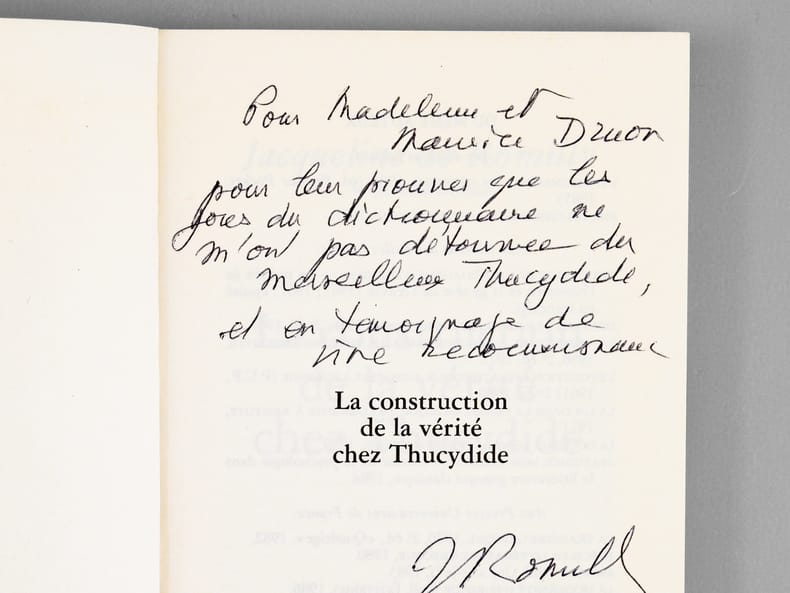 Pour Madeleine et
Maurice Druon
pour leur prouver que les
joies du dictionnaire ne
m'ont pas détournée du
merveilleux Thucydide,
et en témoignage de
vive reconnaissance
La construction
de la vérité
chez Thucydide
J Romilly